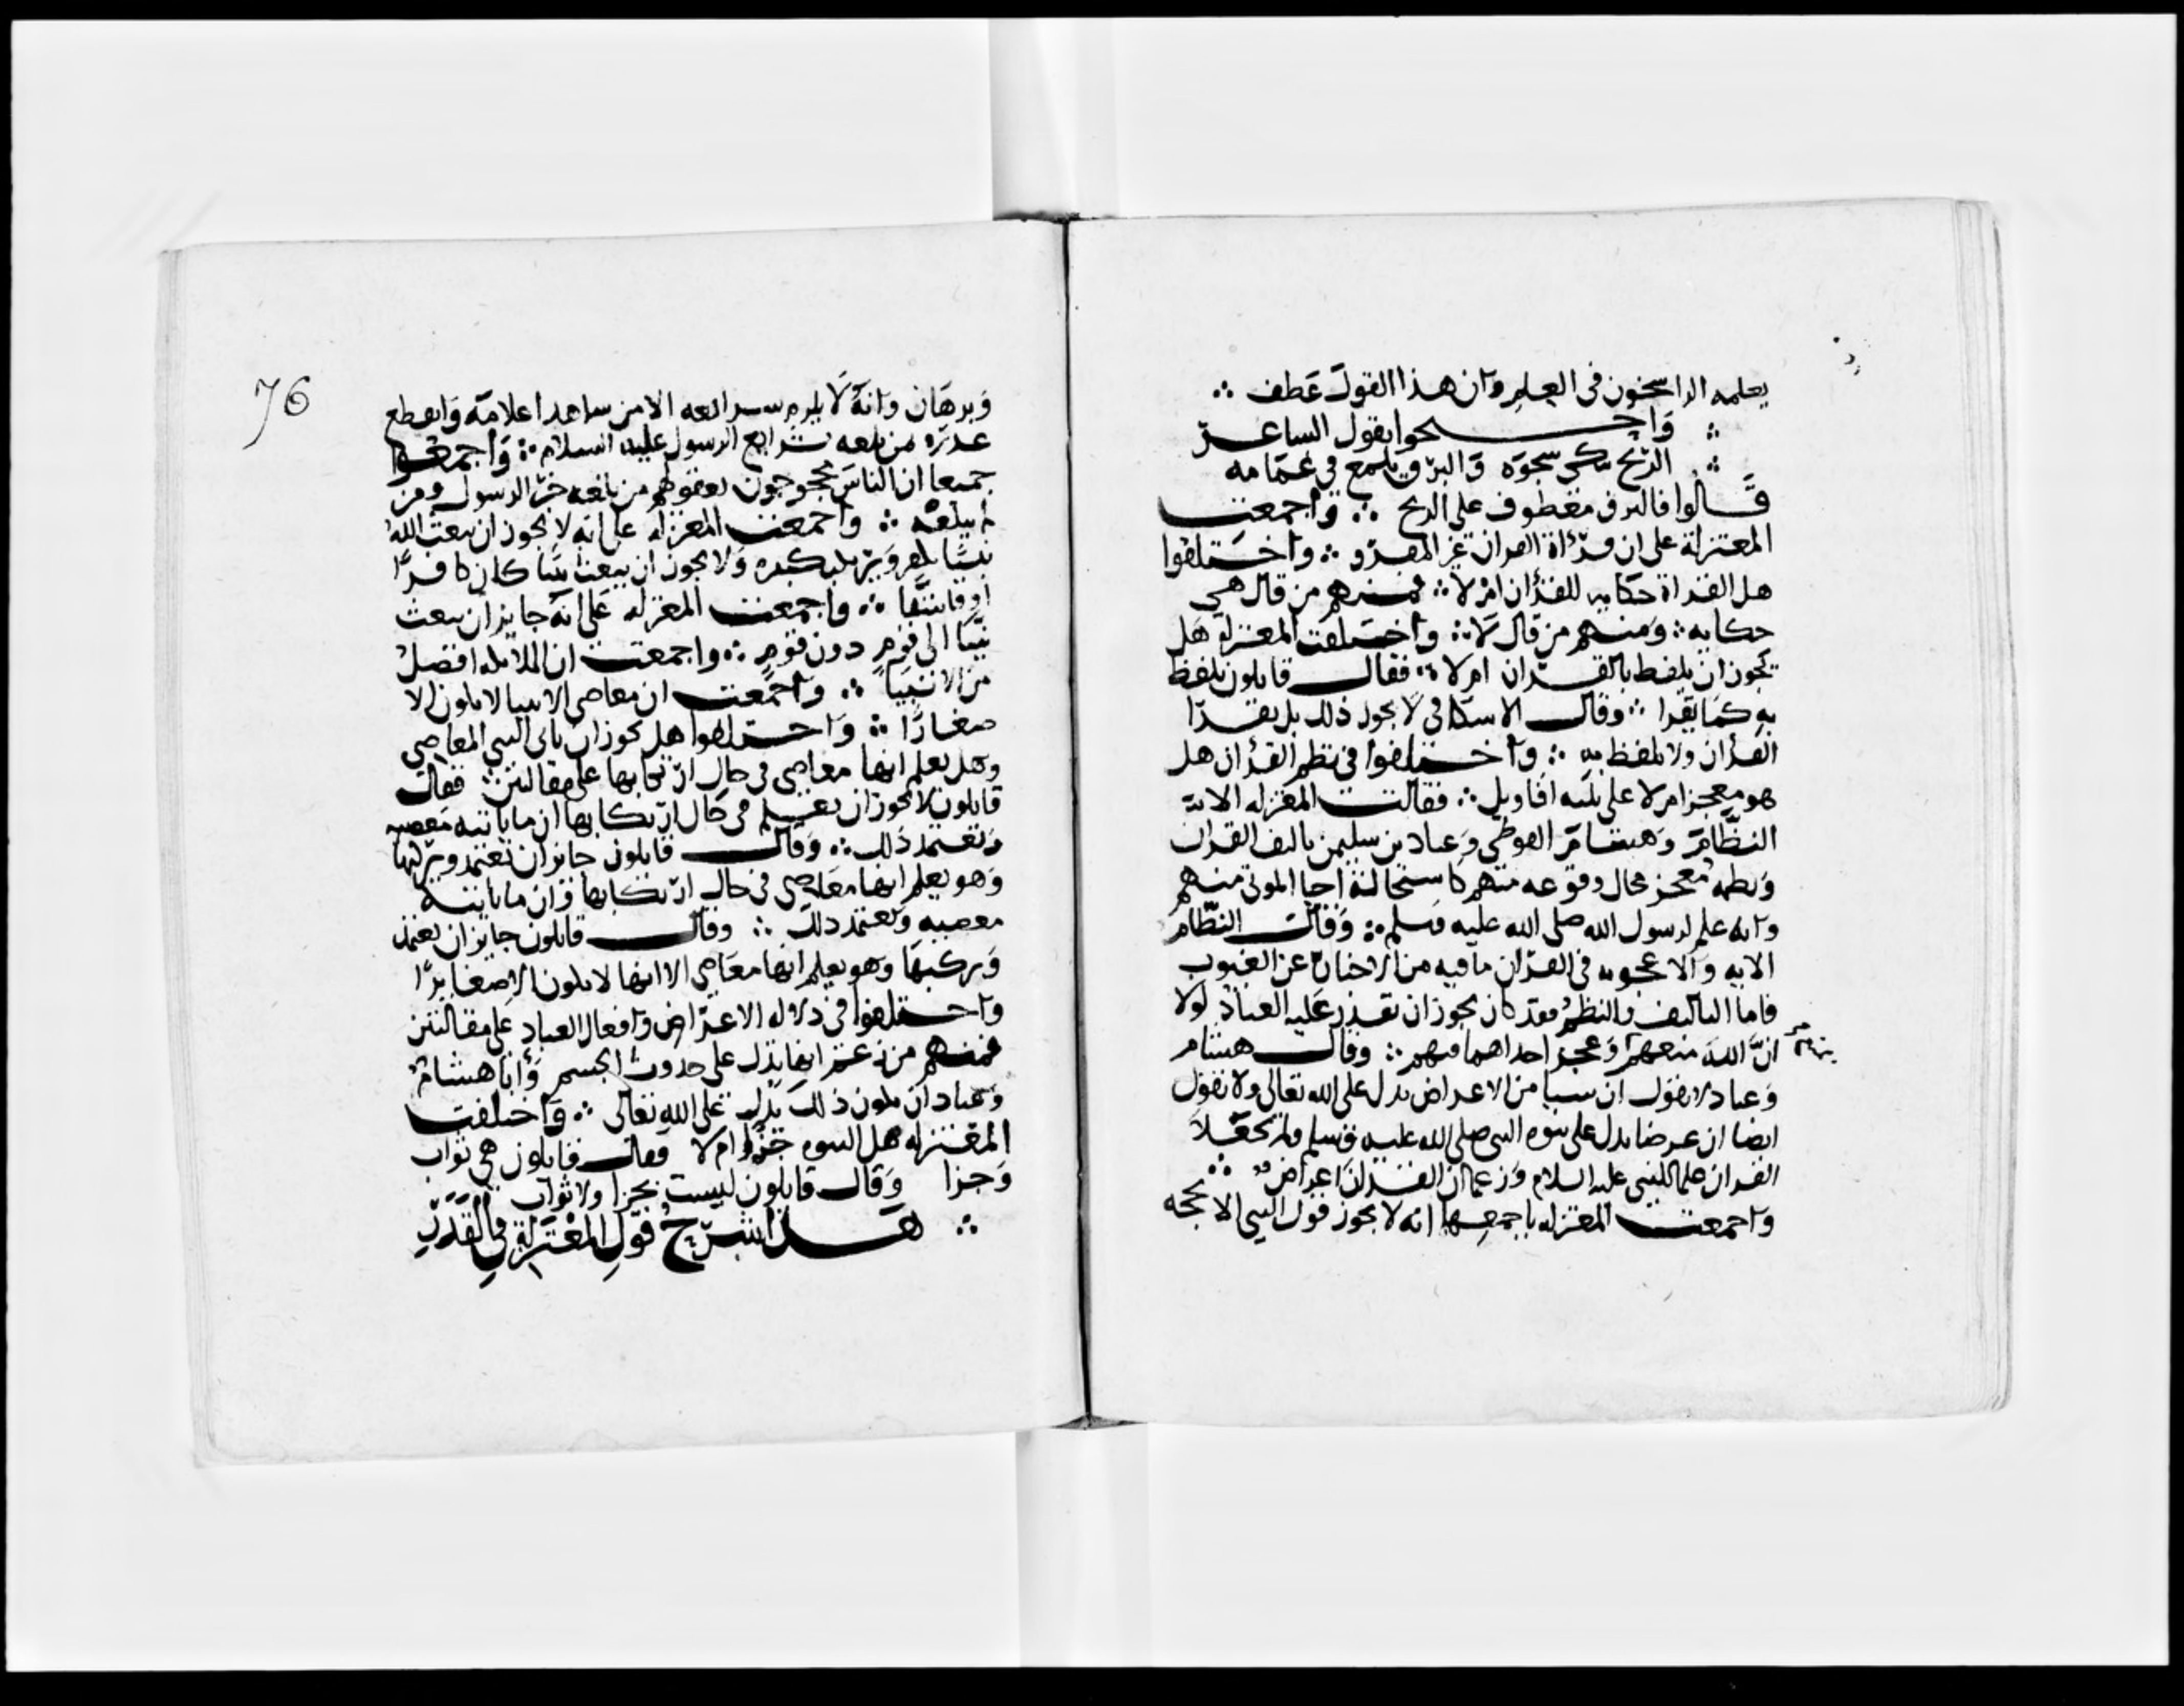 يعلمه الراسخون في العلم وان هذا القول عطف ∴
∴ واحتجوا بقول الشاعر
∴ الريح تبكي شجوه والبرق يلمع في غمامه
قالوا فالبرق معطوف على الريح ∴ واجمعت
المعتزلة على ان قراءة القران غير المقرو ∴ واختلفوا
هل القراة حكايه للقرأن ام لا ∴ فمنهم من قال هي
حكايه ∴ ومنهم من قال لا ∴ واختلفت المعتزلة هل
يجوز ان يلفظ بالقران ام لا ∴ فقال قايلون يلفظ
به كما يقرا ∴ وقال الاسكافي لا يجوز ذلك بل يقرا
القرأن ولا يلفظ به ∴ واختلفوا في نظم القرأن هل
هو معجز ام لا على ثلثه اقاويل ∴ فقالت المعتزله الا
النظام وهشام الفوطي وعباد بن سليمن تاليف القران
ونظمه معجز محال وقوعه منهم كاستحالة احيا الموتى منهم
وانه علم لرسول الله صلى الله عليه وسلم ∴ وقال النظام
الايه والاعجوبه في القران ما فيه من الاخبار عن الغيوب
فاما التاليف والنظم فقد كان يجوز ان يقدر عليه العباد لولا
ان الله منعهم وعجز احداهما فيهم ∴ وقال هشام
وعباد لا نقول ان شيا من الاعراض يدل على الله تعالى ولا نقول
ايضا ان عرضا يدل على نبوه النبي صلى الله عليه وسلم ولم يجعلا
القران علما للنبي عليه السلام وزعما ان القران اعراض ∴
واجمعت المعتزله باجمعها انه لا يجوز قول النبي الا بحجه
76
وبرهان وانه لا يلزم شرايعه الا من شاهد اعلامه وانقطع
عذره من بلغه شرايع الرسول عليه السلام ∴ واجمعوا
جميعا ان الناس محجوجون بعقولهم من بلغه خبر الرسول ومن
لم يبلغه ∴ واجمعت المعتزله على انه لا يجوز ان يبعث الله
نبيا يكفر ويرتكب كبيره ولا يجوز ان يبعث نبيا كان كافرا
او فاسقا ∴ واجمعت المعتزله على انه جايز ان يبعث
نبيا الى قوم دون قوم ∴ واجمعت ان الملايكه افضل
من الانبيا ∴ واجمعت ان معاصي الانبيا لا يكون الا
صغارا ∴ واختلفوا هل يجوز ان ياتي النبي المعاصي
وهل يعلم انها معاصي في حال ارتكابها على مقالتين ∴ فقال
قايلون لا يجوز ان يعلم في حال ارتكابها ان ما ياتيه معصيه
ويعتمد ذلك ∴ وقال قايلون جايز ان يعتمد ويرتكبها
وهو يعلم انها معاصي في حال ارتكابها وان ما ياتيه
معصيه ويعتمد ذلك ∴ وقال قايلون جايز ان يعتمد
ويركبها وهو يعلم انها معاصي الا انها لا يكون الا صغايرا
واختلفوا في دلاله الاعراض وافعال العباد على مقالتين
فمنهم من زعم انها تدل على حدوث الجسم وأبا هشام
وعباد ان يكون ذلك يدل على الله تعالى ∴ واختلفت
المعتزله هل النبوه جزا ام لا فقال قايلون هي ثواب
وجزا وقال قايلون ليست بجزا ولا ثواب
∴ هذا شرح قول المعتزلة في القدر